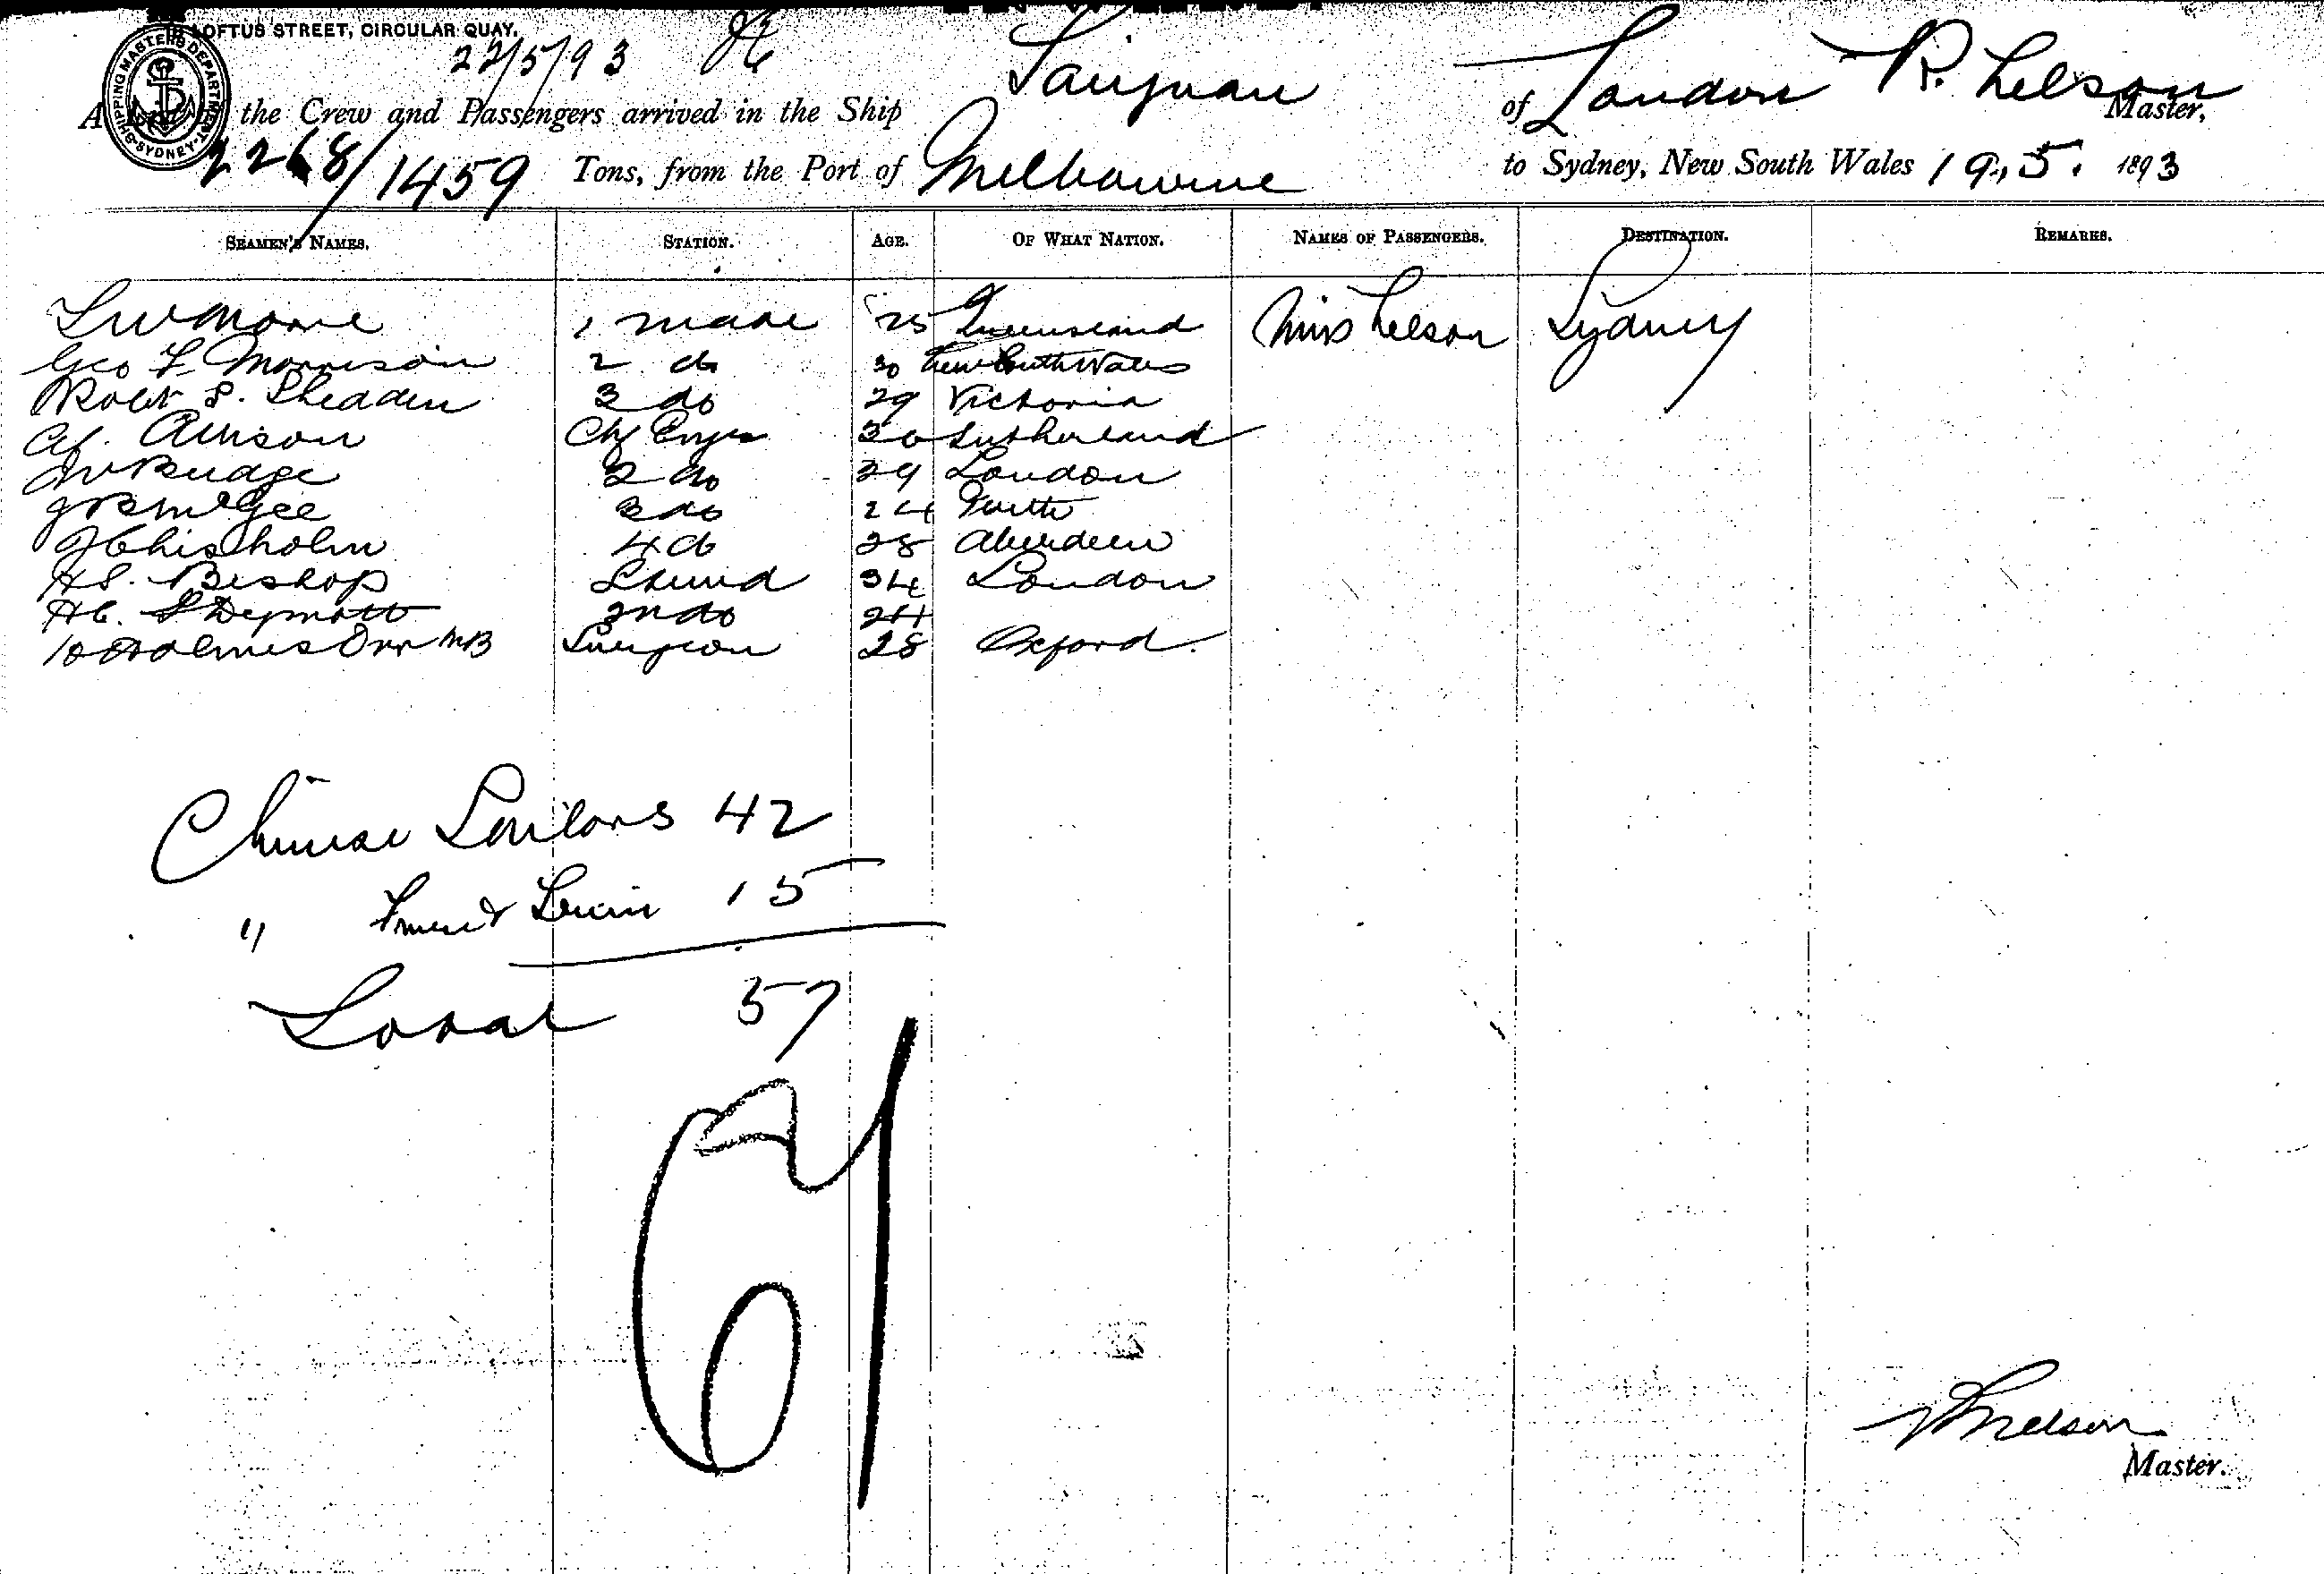 LOFTUS STREET, CIRCULAR QUAY.
SHIPPING MASTERS DEPARTMENT SYDNEY
22/5/93
A the Crew and Passengers arrived in the Ship Taiyuan of London R. Nelson Master,
2268/1459 Tons, from the Port of Melbourne to Sydney, New South Wales 19.5. 1893
SEAMEN'S NAMES. STATION. AGE. OF WHAT NATION. NAMES OF PASSENGERS. DESTINATION. REMARKS.
1 mate 25 Queensland Miss Nelson Sydney
Geo F. Morrison 2 do 30 New South Wales
Robt S. Shedden 3 do 29 Victoria
Chf Engr 30 Sutherland
JW Budge 2 do 39 London
J B McGee 3 do 24 Perth
J Chisholm 4 do 28 Aberdeen
HS. Bishop Steward 34 London
HC. 2n do 24
Holmes Orr MB Surgeon 28 Oxford.
Chinese Sailors 42
" 15
Total 57
67
R Nelson
Master.